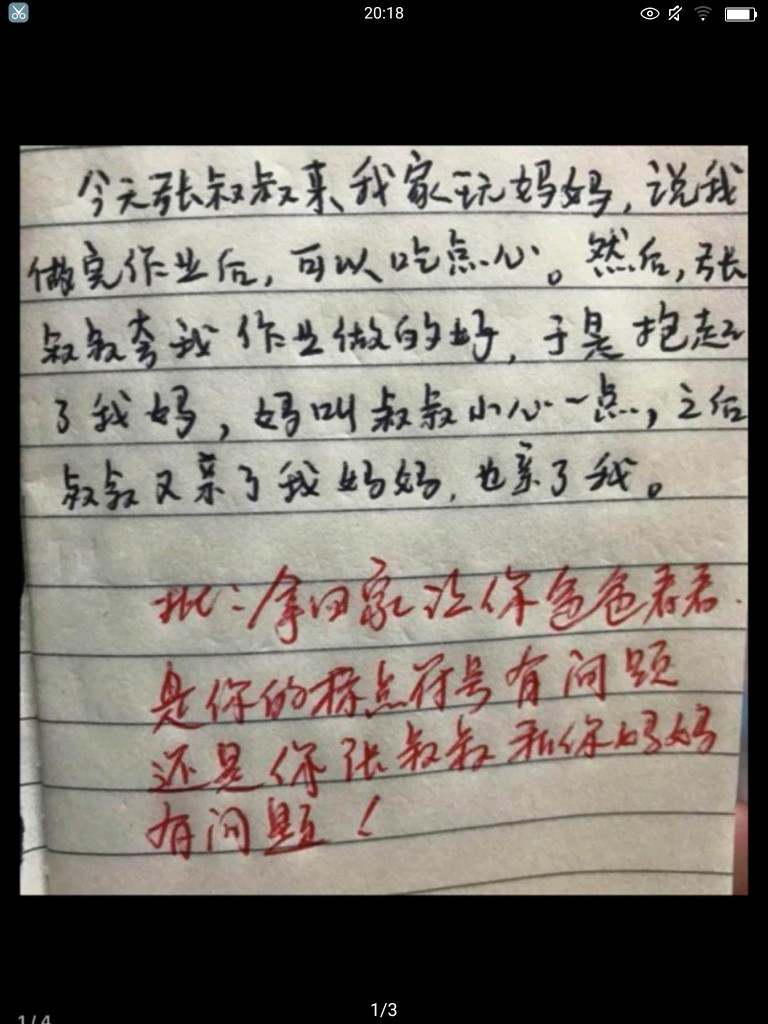 20:18
今天张叔叔来我家玩妈妈,说我
做完作业后,可以吃点心。然后,张
叔叔夸我作业做的好,于是抱起
了我妈,妈叫叔叔小心一点,之后
叔叔又亲了我妈妈,也亲了我。
批:拿回家让你爸爸看看.
是你的标点符号有问题
还是你张叔叔和你妈妈
有问题!
1/3
1/4